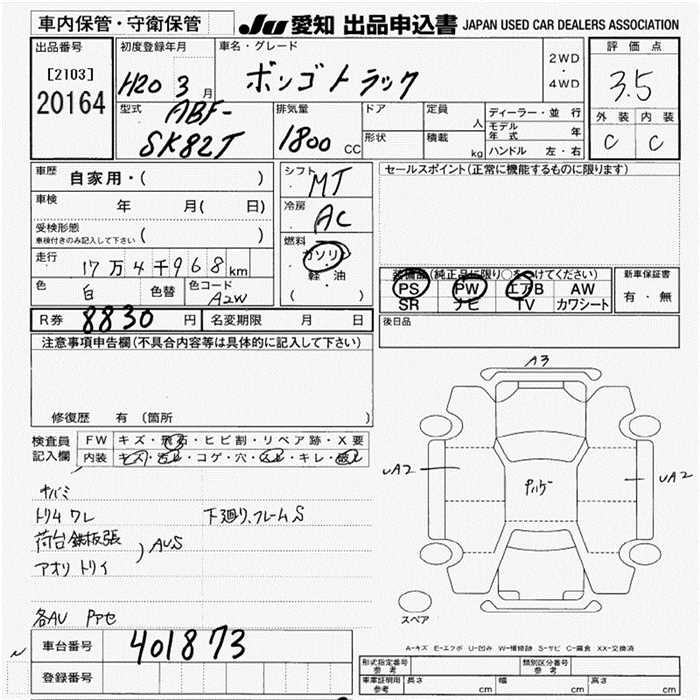 車内保管・守衛保管 JU 愛知 出品申込書 JAPAN USED CAR DEALERS ASSOCIATION
出品番号 初度登録年月 車名・グレード 2WD・4WD 評価点
[2103] H20 3月 ボンゴトラック 3.5
20164 型式 ABF-SK82T 排気量 1800 CC ドア 定員 人 ディーラー・並行
形状 積載 kg モデル年式 年 外装 内装
ハンドル 左・右 C C
車歴 自家用・( ) シフト MT セールスポイント(正常に機能するものに限ります)
車検 年 月( 日) 冷房 AC
受検形態 ( )
車検付きのみ記入して下さい
燃料 ガソリン 軽・油 ( )
走行 17万4千968km
色 白 色替 色コード A2W
装備品(純正品に限り○をつけてください) 新車保証書
PS PW エアB AW 有・無
SR ナビ TV カワシート
R券 8830円 名変期限 月 日 後日品
注意事項申告欄(不具合内容等は具体的に記入して下さい)
修復歴 有 (箇所
検査員記入欄 FW キズ・飛石・ヒビ割・リペア跡・X要
内装 キズ・汚れ・コゲ・穴・スレ・キレ・破れ
A3
UA2 UA2
ナバミ
トリム ワレ 下廻り、フレームS
荷台鉄板張 ) AUS
アオリ トリイ
各AU PPセ
スペア
車台番号 401873
A-キズ E-エクボ U-凹み W-補修跡 S-サビ C-腐食 XX-交換済
登録番号
形式指定番号 参考 類別区分番号 参考
車庫証明用 参考 長さ cm 幅 cm 高さ cm